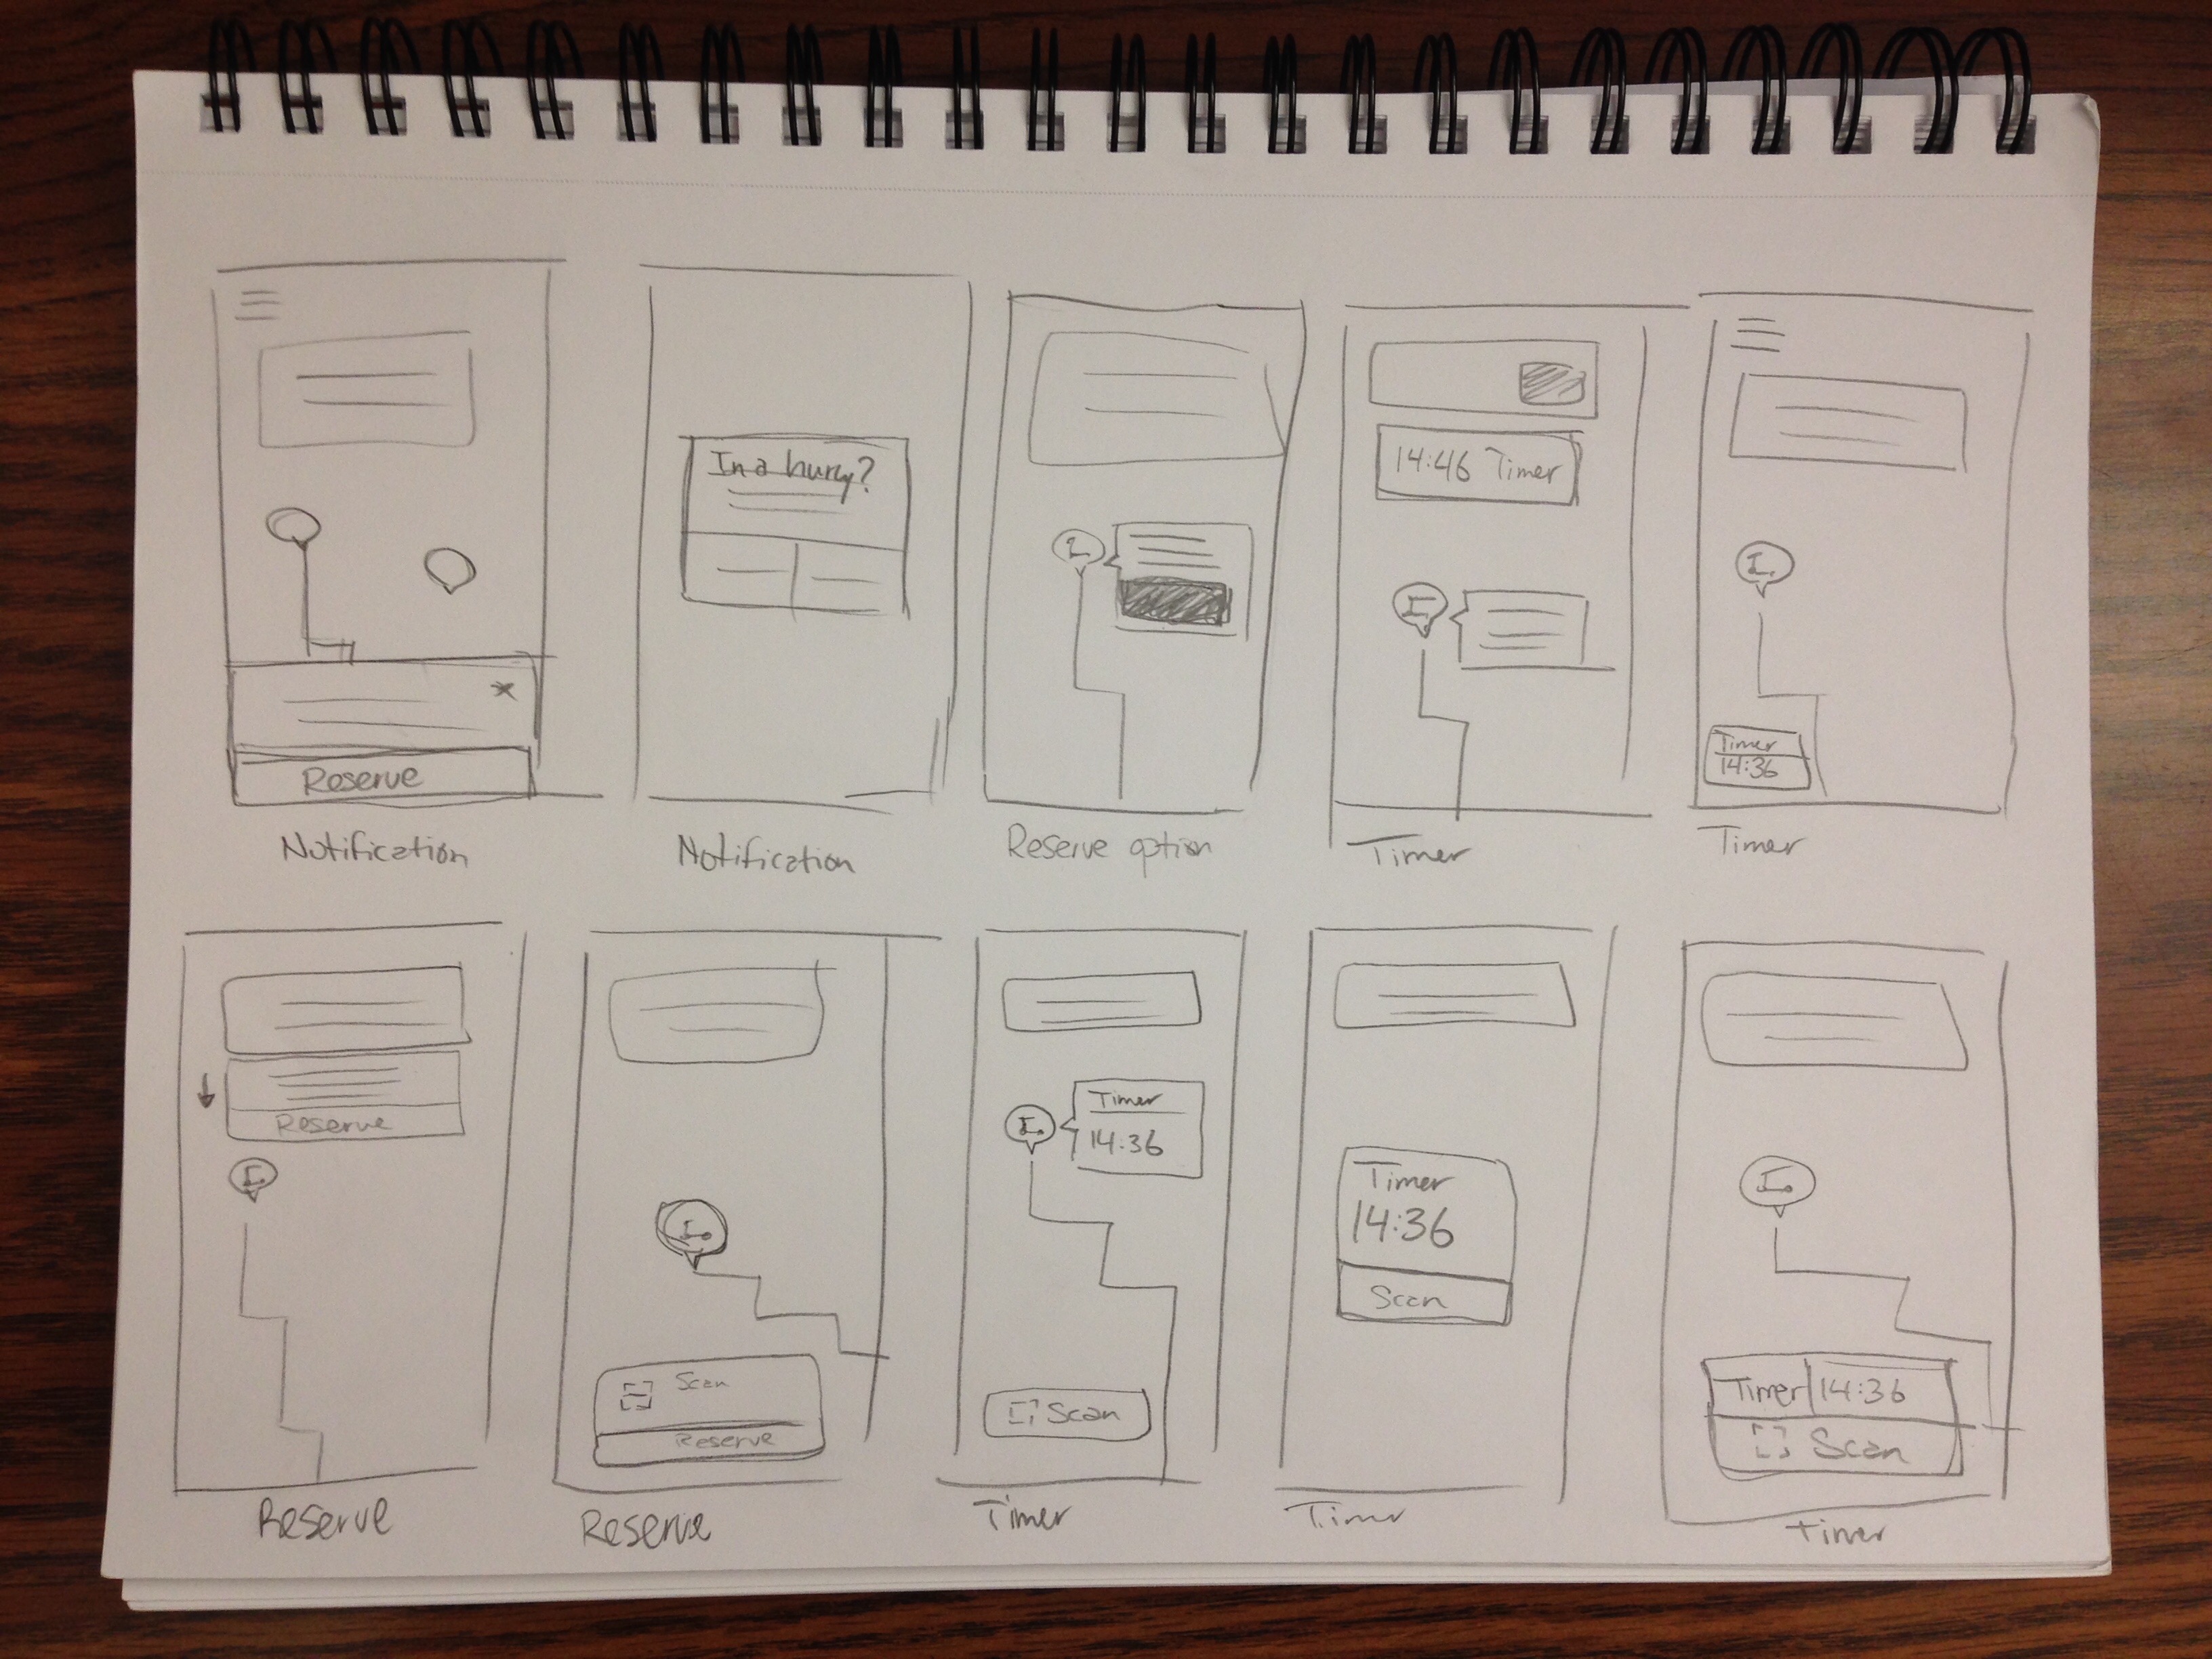 Reserve
Notification
In a hurry?
Notification
Reserve option
14:46 Timer
Timer
Timer
14:36
Timer
Reserve
Reserve
Scan
Reserve
Reserve
Timer
14:36
Scan
Timer
Timer
14:36
Scan
Timer
Timer 14:36
Scan
Timer